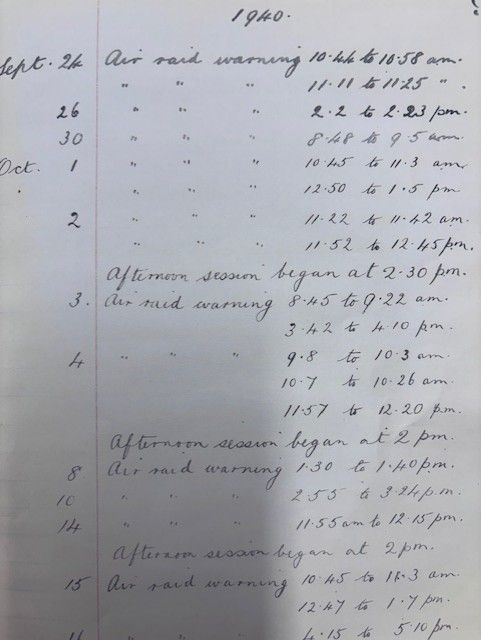 1940.
Sept. 24 Air raid warning 10.44 to 10.58 am.
" " " 11.11 to 11.25 " .
26 " " " 2.2 to 2.23 pm.
30 " " " 8.48 to 9.5 am.
Oct. 1 " " " 10.45 to 11.3 am.
" " " 12.50 to 1.5 pm
2 " " " 11.22 to 11.42 am.
" " " 11.52 to 12.45 pm.
Afternoon session began at 2.30 pm.
3. Air raid warning 8.45 to 9.22 am.
3.42 to 4.10 pm.
4 " " " 9.8 to 10.3 am.
10.7 to 10.26 am.
11.57 to 12.20 pm.
Afternoon session began at 2 pm.
8 Air raid warning 1.30 to 1.40 pm.
10 " " " 2.55 to 3.24 p.m.
14 " " " 11.55 am to 12.15 pm.
Afternoon session began at 2 pm.
15 Air raid warning 10.45 to 11.3 am.
12.47 to 1.7 pm.
" " " 4.15 to 5.10 pm.